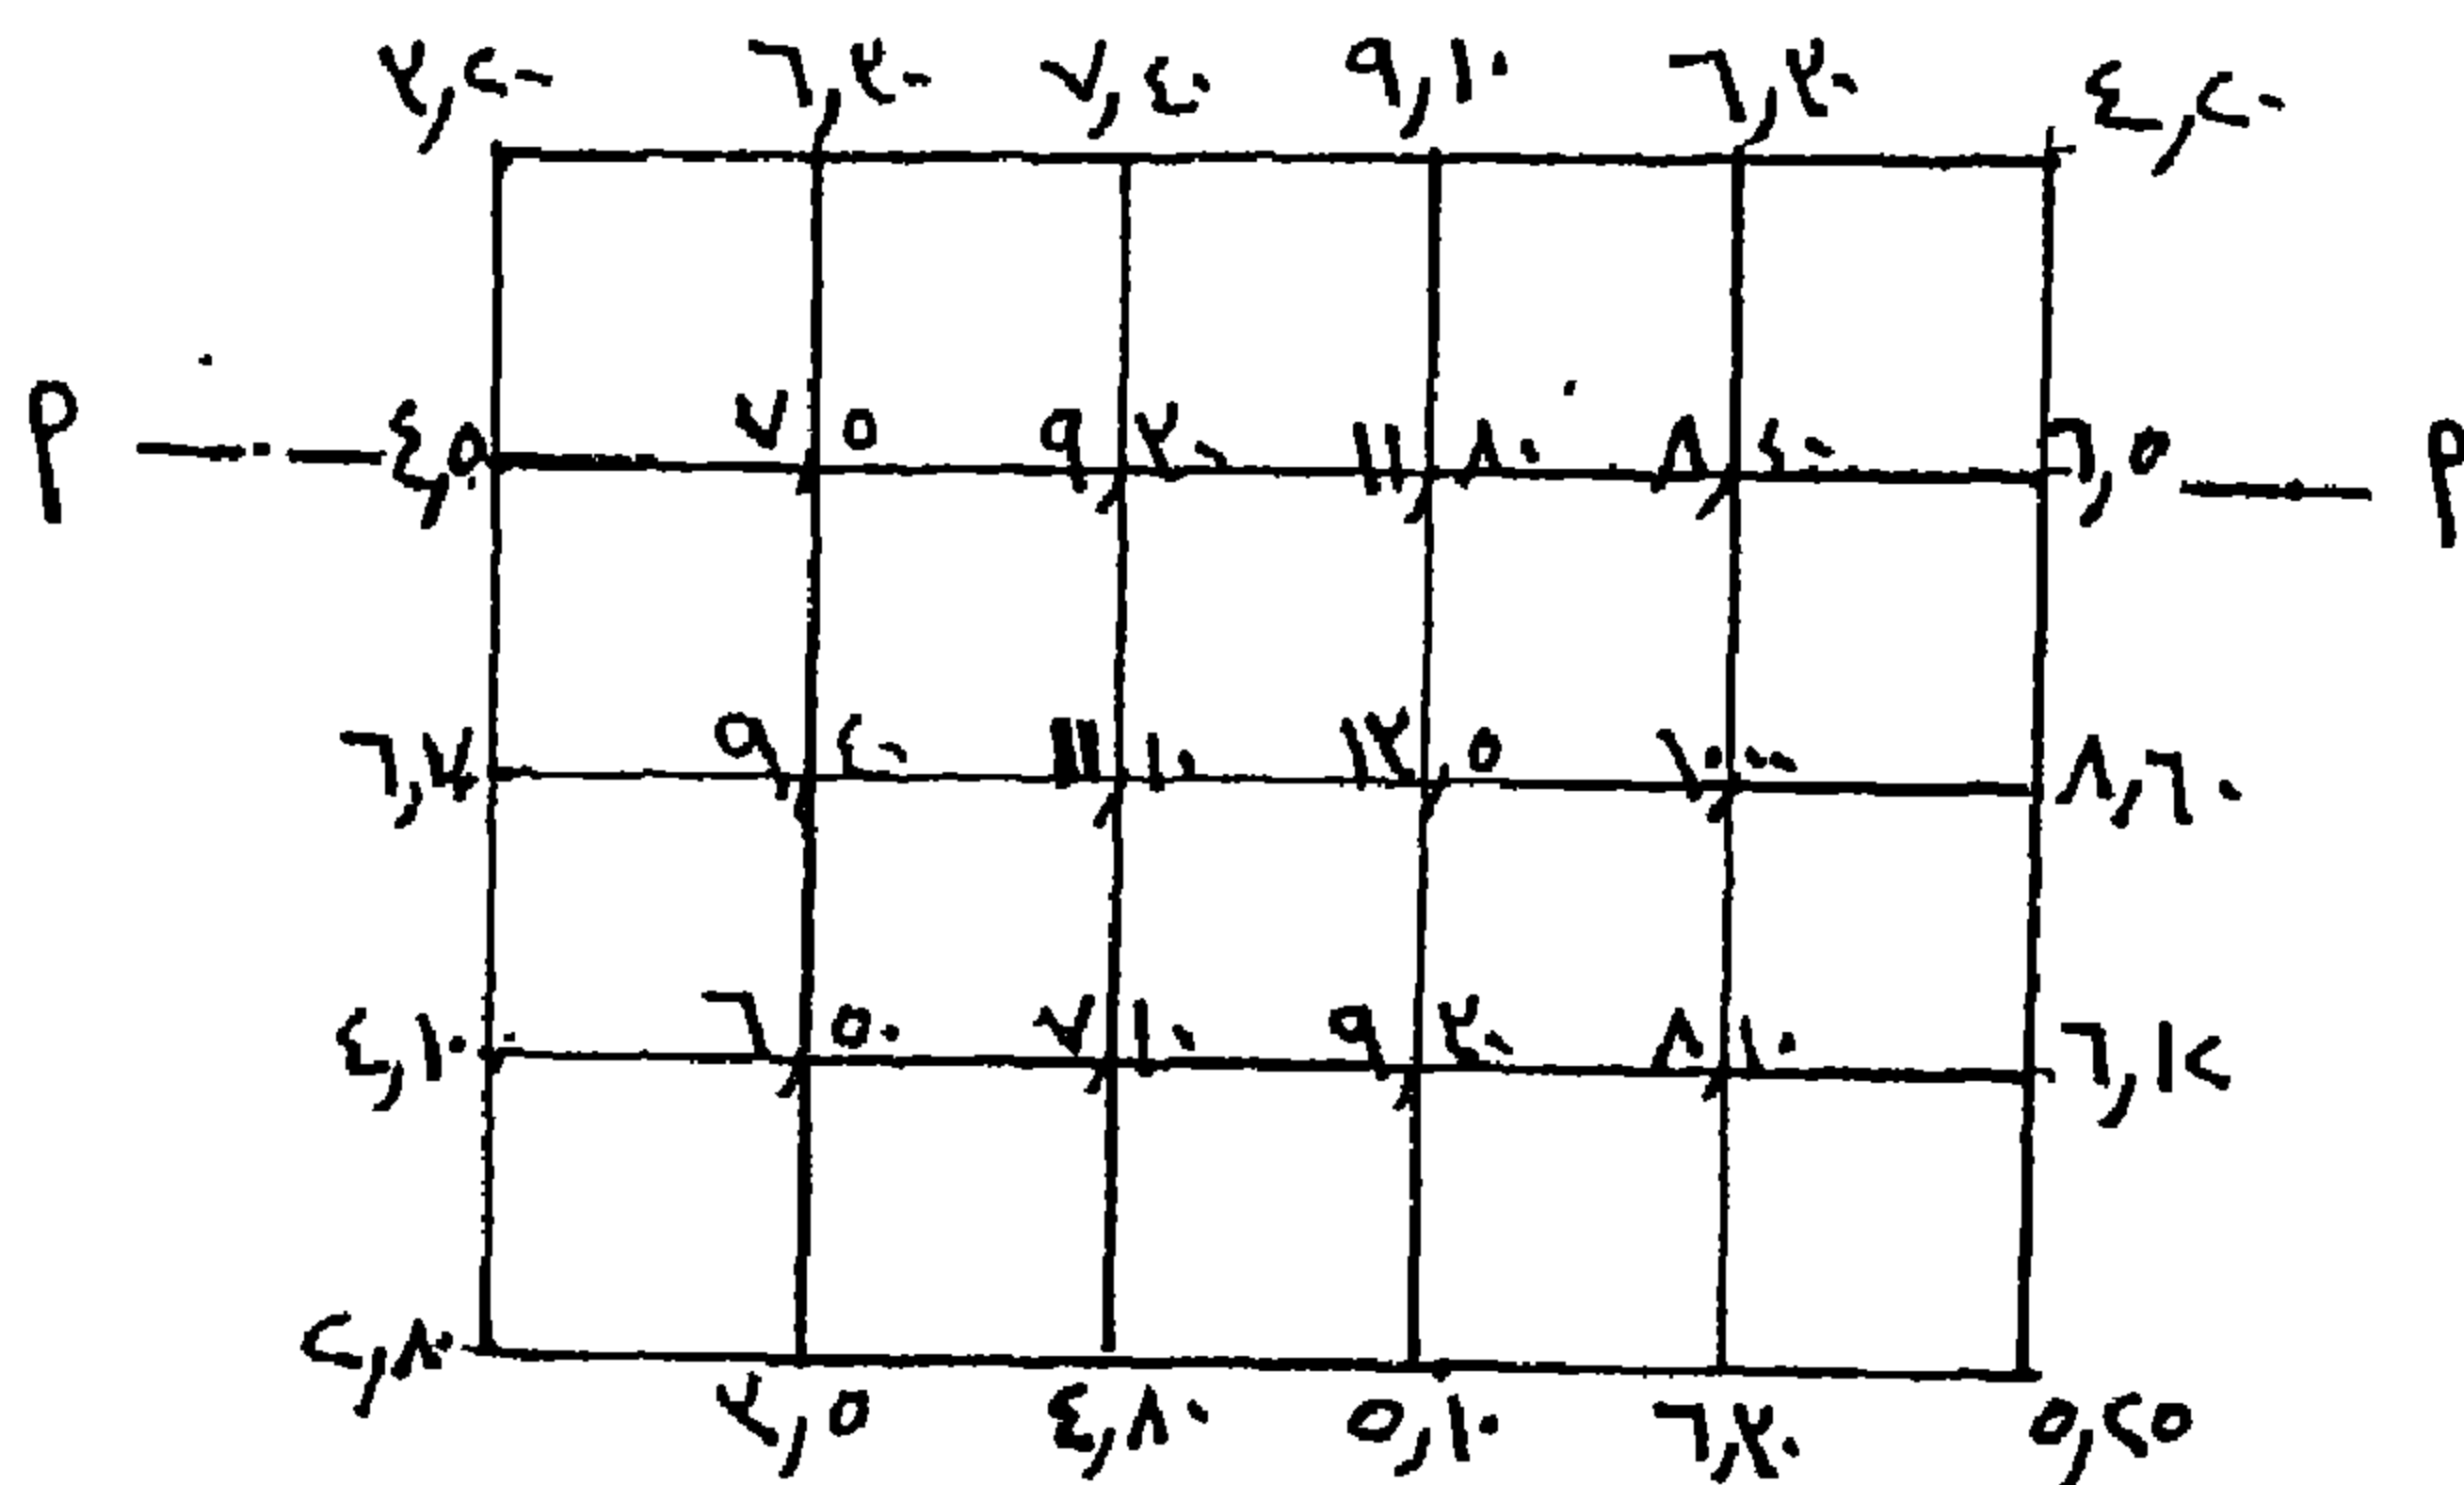 ٣,٢٠ ٦,٣٠ ٧,٤٠ ٩,١٠ ٦,٣٠ ٤,٢٠
م ٤,٥ ٧,٥ ٩,٣٠ ١١,٨٠ ٨,٤٠ ٦,٥ م
٦,٧ ٩,٢٠ ١١,١٠ ١٣,٥ ٨,٦٠
٤,١٠ ٦,٥٠ ٧,١٠ ٩,٣٠ ٨,١٠ ٦,١٢
٢,٨٠
٣,٥ ٤,٨٠ ٥,١٠ ٦,٣٠ ٥,٢٥